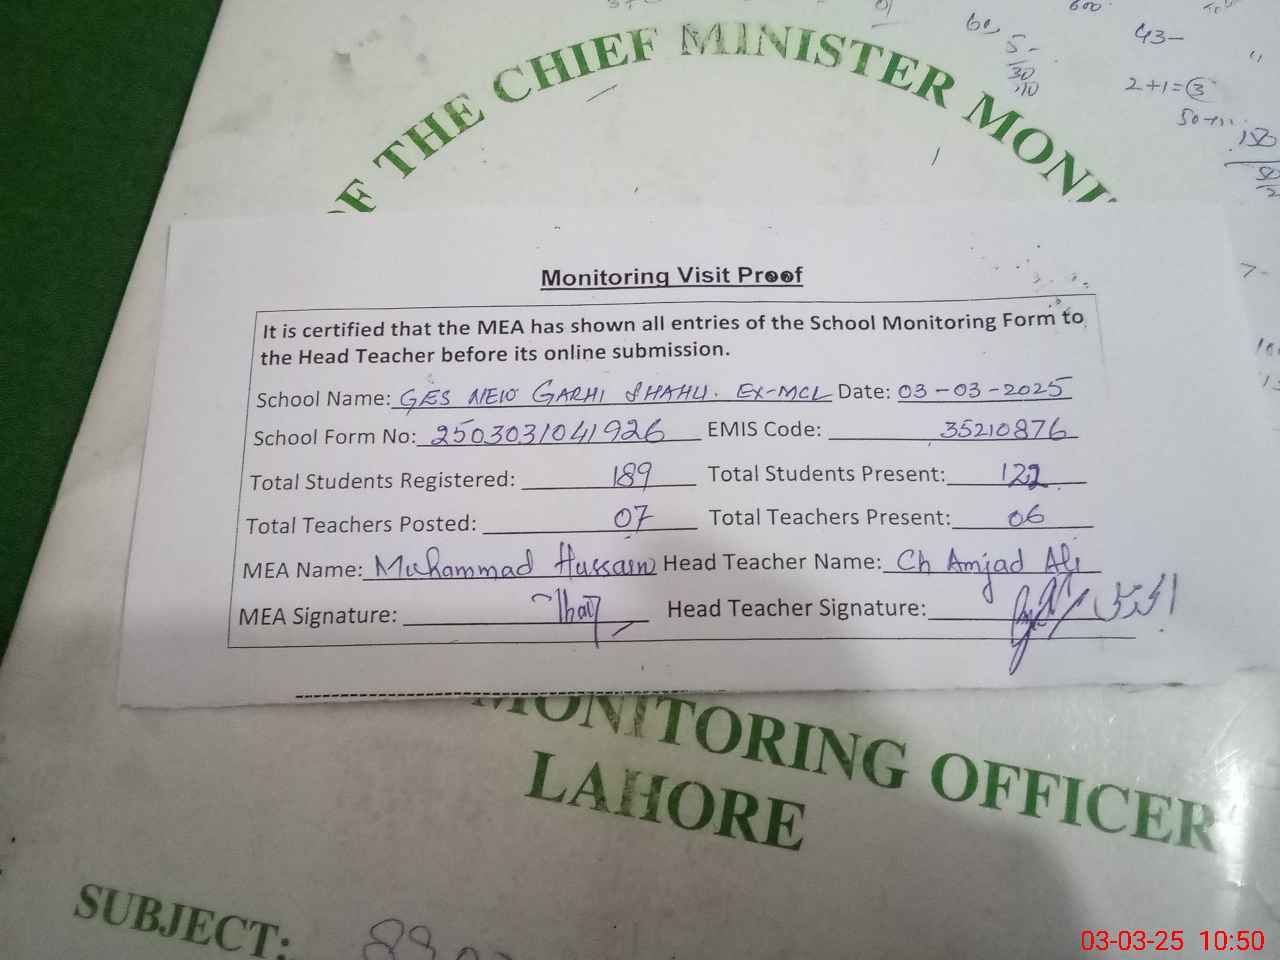 OF THE CHIEF MINISTER MONI
60
5-
30
10
600
43-
2+1=3
50
150
50
2
7-
Monitoring Visit Proof
It is certified that the MEA has shown all entries of the School Monitoring Form to
the Head Teacher before its online submission.
School Name: GES NEW GARHI SHAHU. EX-MCL Date: 03-03-2025
School Form No: 2503031041926 EMIS Code: 35210876
Total Students Registered: 189 Total Students Present: 122
Total Teachers Posted: 07 Total Teachers Present: 06
MEA Name: Muhammad Hussain Head Teacher Name: Ch Amjad Ali
MEA Signature: Head Teacher Signature:
MONITORING OFFICER
LAHORE
SUBJECT:
03-03-25 10:50